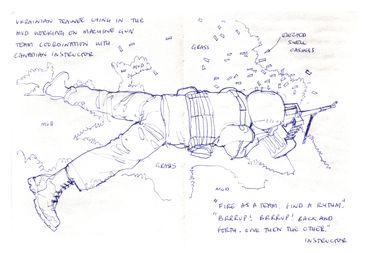 UKRAINIAN TRAINEE LYING IN THE
MUD WORKING ON MACHINE GUN
TEAM COORDINATION WITH
CANADIAN INSTRUCTOR
GRASS
EJECTED
SHELL
CASINGS
MUD
MUD
GRASS
MUD
"FIRE AS A TEAM. FIND A RYTHM."
"BRRRUP! BRRRUP! BACK AND
FORTH. ONE THEN THE OTHER."
INSTRUCTOR